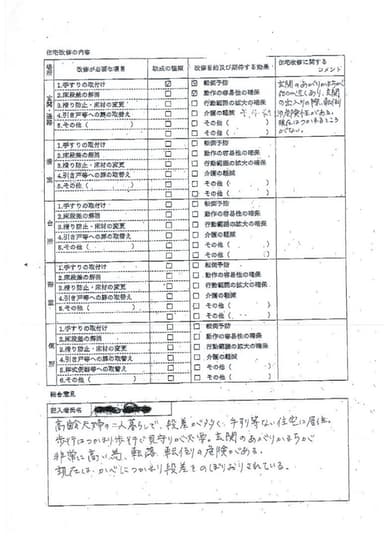 住宅改修の内容
場所 改修が必要な項目 助成の種類 改修目的及び期待する効果 住宅改修に関するコメント
玄関・通路
1.手すりの取付け ☑ ☑ 転倒予防
2.床段差の解消 □ ☑ 動作の容易性の確保
3.滑り防止・床材の変更 □ □ 行動範囲の拡大の確保
4.引き戸等への扉の取替え □ □ 介護の軽減
5.その他（ ） □ □ その他（ ）
□ その他（ ）
玄関のあがりかまちが
あり、玄関
の出入りの際、転倒
の危険性がある。
現在はつかまるところ
がない。
室
1.手すりの取付け □ □ 転倒予防
2.床段差の解消 □ □ 動作の容易性の確保
3.滑り防止・床材の変更 □ □ 行動範囲の拡大の確保
4.引き戸等への扉の取替え □ □ 介護の軽減
5.その他（ ） □ □ その他（ ）
□ その他（ ）
台所
1.手すりの取付け □ □ 転倒予防
2.床段差の解消 □ □ 動作の容易性の確保
3.滑り防止・床材の変更 □ □ 行動範囲の拡大の確保
4.引き戸等への扉の取替え □ □ 介護の軽減
5.その他（ ） □ □ その他（ ）
□ その他（ ）
室
1.手すりの取付け □ □ 転倒予防
2.床段差の解消 □ □ 動作の容易性の確保
3.滑り防止・床材の変更 □ □ 行動範囲の拡大の確保
4.引き戸等への扉の取替え □ □ 介護の軽減
5.その他（ ） □ □ その他（ ）
□ その他（ ）
便所
1.手すりの取付け □ □ 転倒予防
2.床段差の解消 □ □ 動作の容易性の確保
3.滑り防止・床材の変更 □ □ 行動範囲の拡大の確保
4.引き戸等への扉の取替え □ □ 介護の軽減
5.洋式便器等への取替え □ □ その他（ ）
6.その他（ ） □ □ その他（ ）
総合意見
記入者氏名
高齢夫婦の二人暮らしで、段差が多く、手すり等ない住宅に居住。
歩行はつかまり歩行で見守りが必要。玄関のあがりかまちが
非常に高い為、転落、転倒の危険がある。
現在は、かべにつかまり段差をのぼりおりされている。